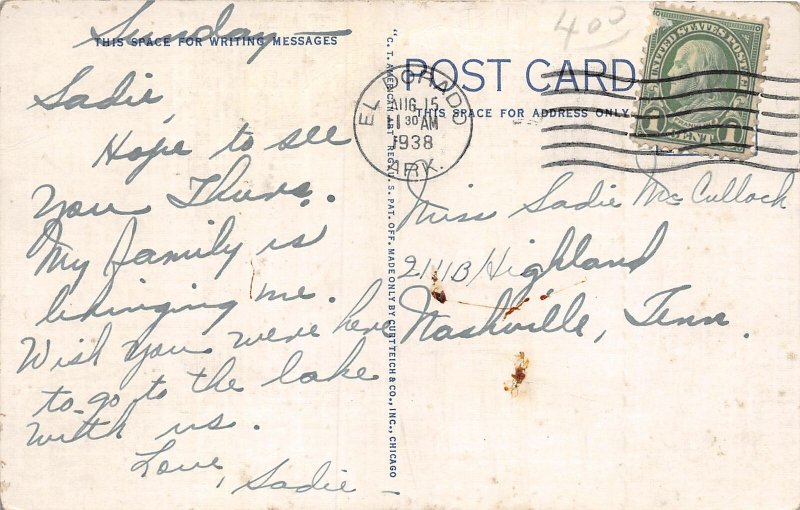 Sunday —
THIS SPACE FOR WRITING MESSAGES
Sadie,
Hope to see
you Thurs.
My family is
bringing me.
Wish you were here
to go to the lake
with us.
Love,
Sadie
"C. T. AMERICAN ART" REG. U. S. PAT. OFF. MADE ONLY BY CURT TEICH & CO., INC., CHICAGO
400
POST CARD
THIS SPACE FOR ADDRESS ONLY
EL DORADO
AUG 15
30 AM
1938
ARK.
UNITED STATES POSTAGE
1 CENT 1
Miss Sadie McCulloch
211B Highland
Nashville, Tenn.